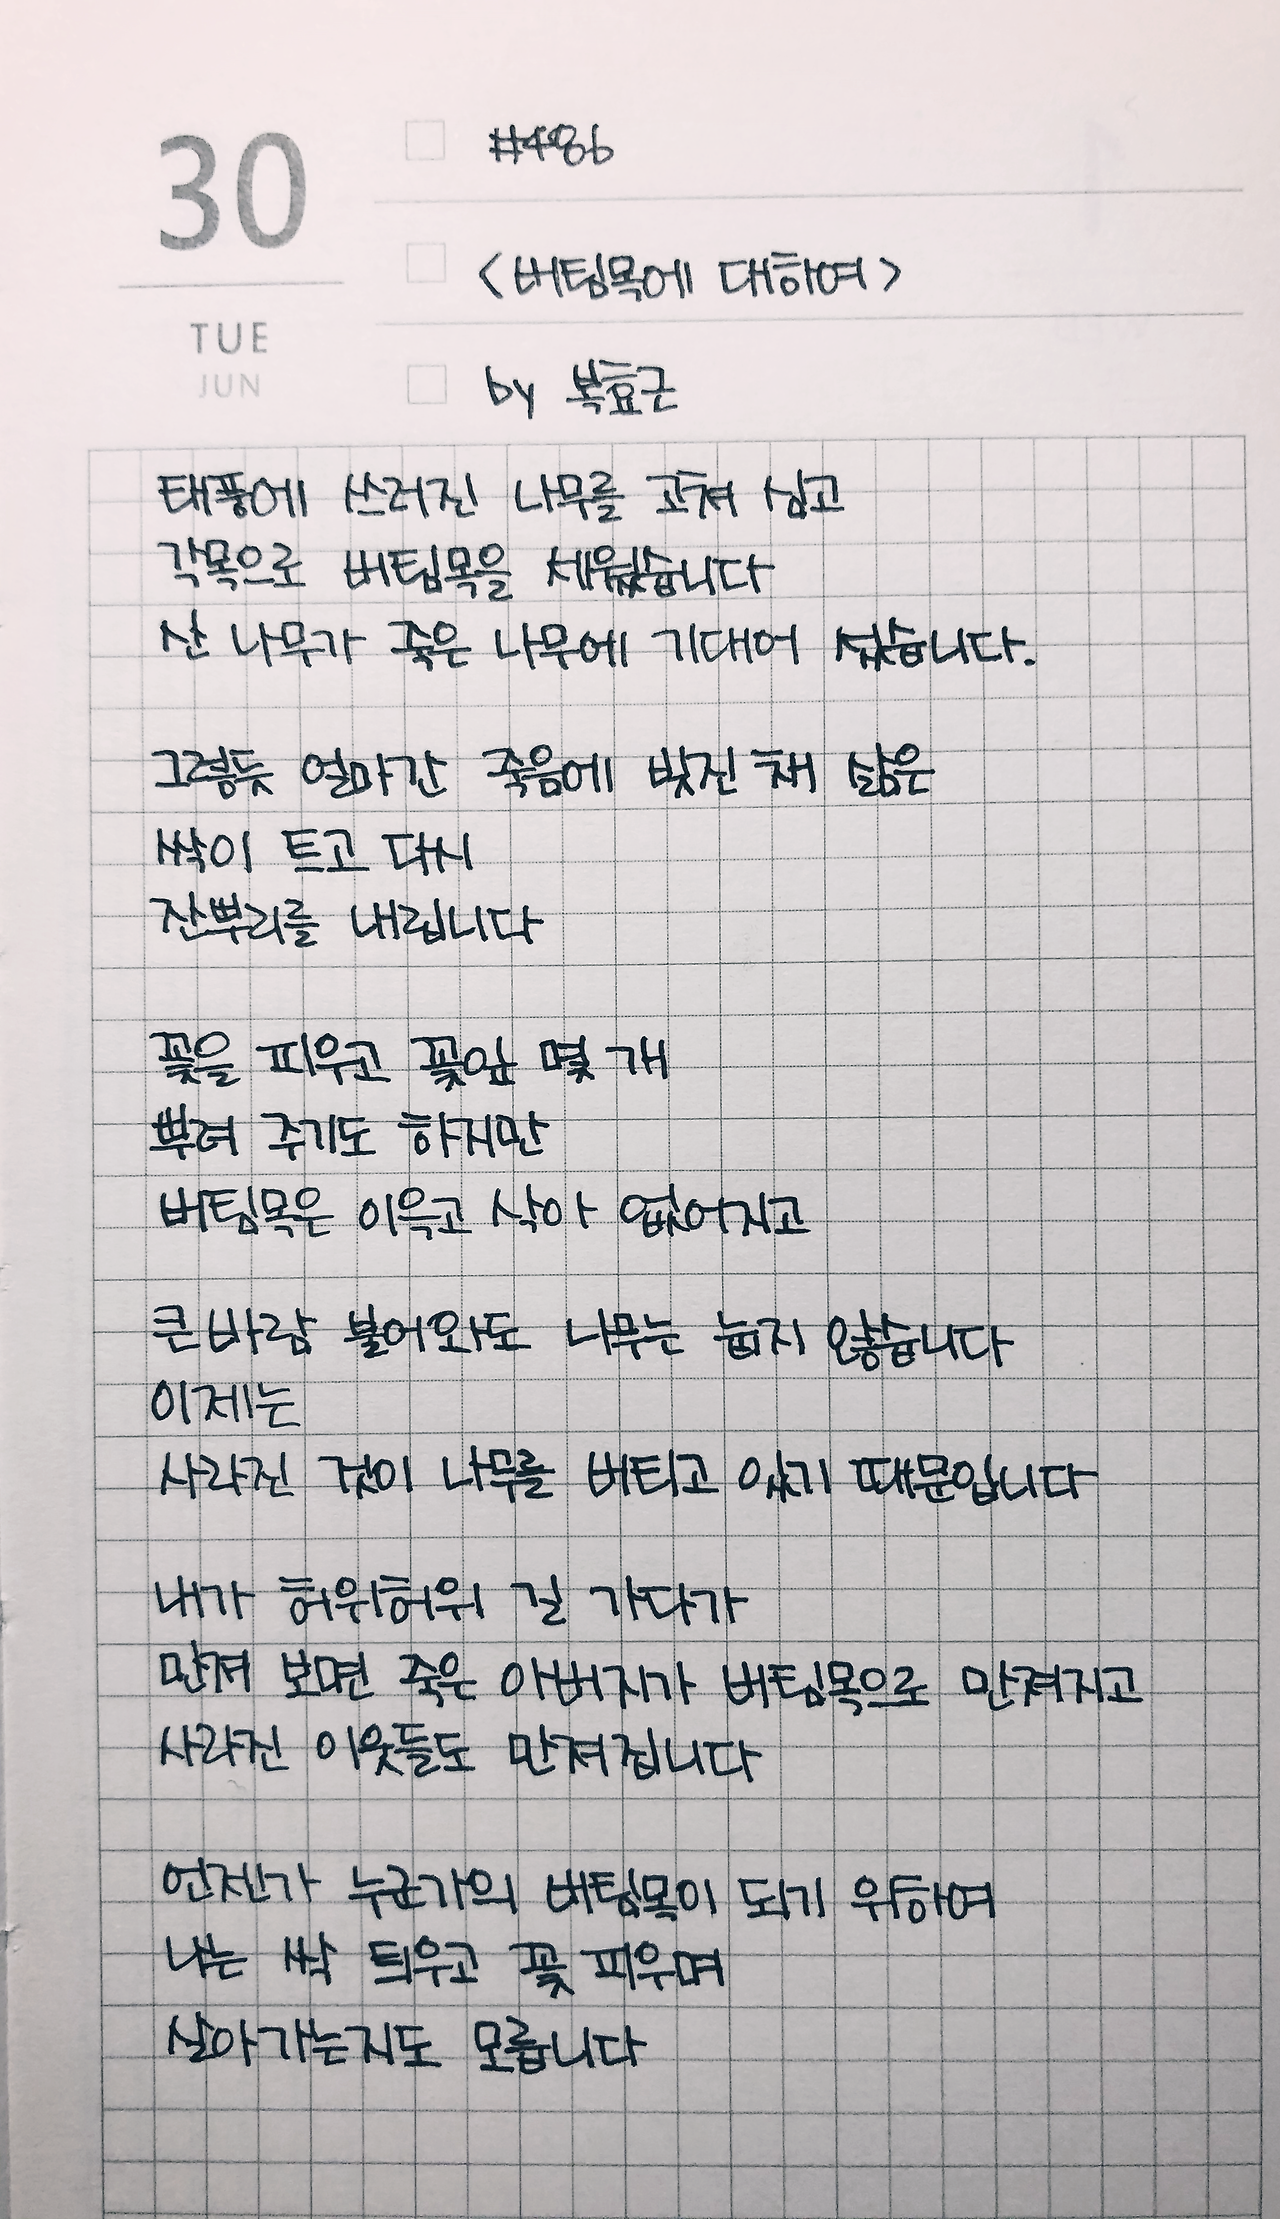 30
TUE
JUN
#486
<버팀목에 대하여>
by 복효근
태풍에 쓰러진 나무를 고쳐 심고
각목으로 버팀목을 세웠습니다
산 나무가 죽은 나무에 기대어 섰습니다.
그렇듯 얼마간 죽음에 빚진 채 삶은
싹이 트고 다시
잔뿌리를 내립니다
꽃을 피우고 꽃잎 몇 개
뿌려 주기도 하지만
버팀목은 이윽고 삭아 없어지고
큰바람 불어와도 나무는 눕지 않습니다
이제는
사라진 것이 나무를 버티고 있기 때문입니다
내가 허위허위 길 가다가
만져 보면 죽은 아버지가 버팀목으로 만져지고
사라진 이웃들도 만져집니다
언젠가 누군가의 버팀목이 되기 위하여
나는 싹 틔우고 꽃 피우며
살아가는지도 모릅니다